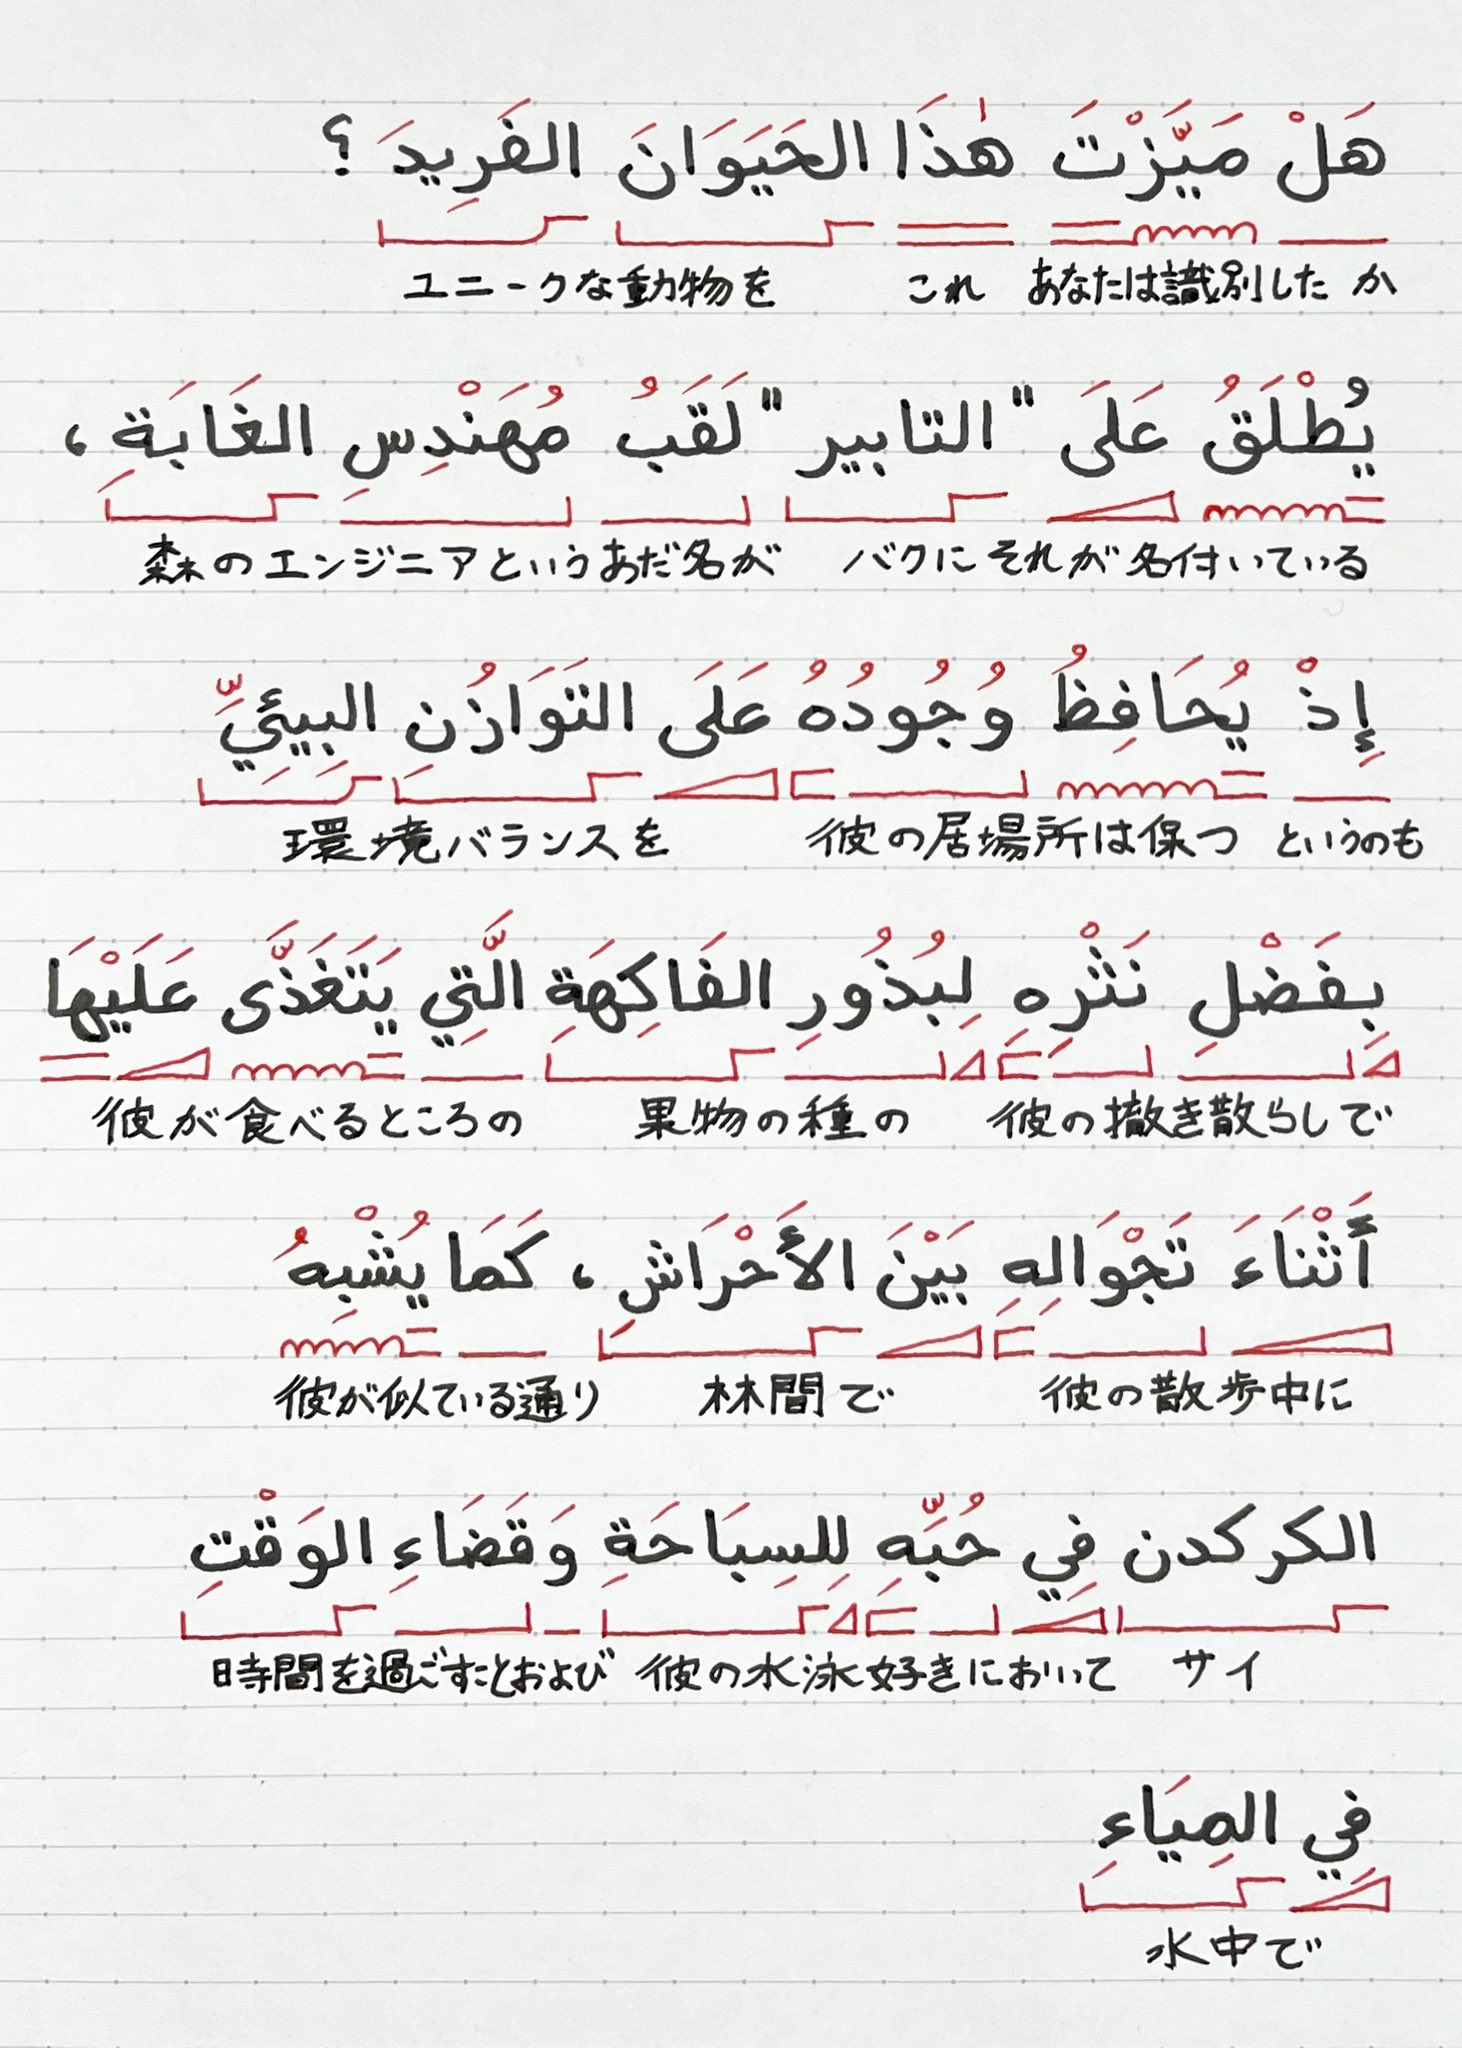 هَلْ مَيَّزْتَ هٰذَا الحَيَوَانَ الفَرِيدَ ؟
ユニークな動物を これ あなたは識別した か
يُطْلَقُ عَلَى "التابير" لَقَبُ مُهَنْدِسِ الغَابَةِ ،
森のエンジニアというあだ名が バクにそれが名付いている
إِذْ يُحَافِظُ وُجُودُهُ عَلَى التَوَازُنِ البِيئَيِّ
環境バランスを 彼の居場所は保つ というのも
بِفَضْلِ نَثْرِهِ لِبُذُورِ الفَاكِهَةِ الَّتِي يَتَغَذَّى عَلَيْهَا
彼が食べるところの 果物の種の 彼の撒き散らしで
أَثْنَاءَ تَجْوَالِهِ بَيْنَ الأَحْرَاشِ ، كَمَا يُشْبِهُ
彼が似ている通り 林間で 彼の散歩中に
الكركدن فِي حُبِّهِ لِلسِبَاحَةِ وَقَضَاءِ الوَقْتِ
時間を過ごすことおよび 彼の水泳好きにおいて サイ
فِي المِيَاءِ
水中で